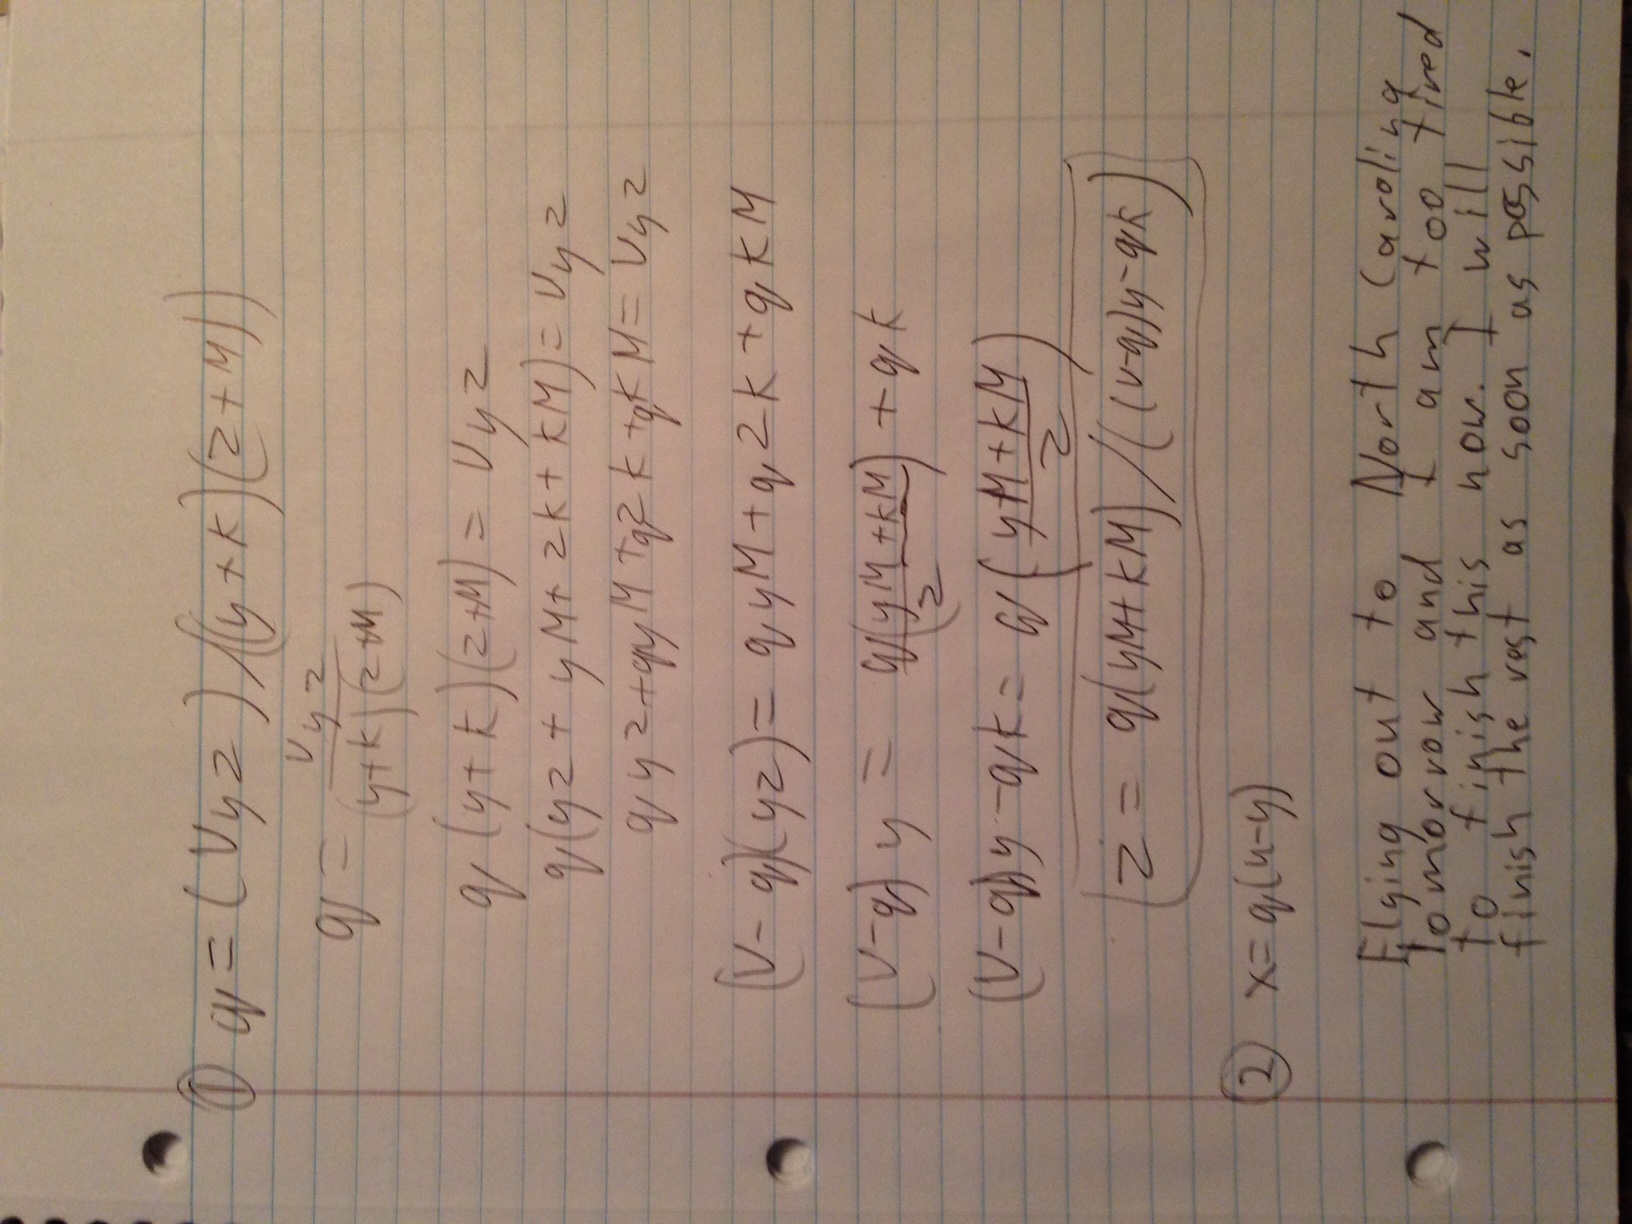 ① q = (Vyz)/((y+k)(z+M))
q = Vyz / (y+k)(z+M)
q(y+k)(z+M) = Vyz
q(yz + yM + zk + kM) = Vyz
qyz + qyM + qzk + qkM = Vyz
(V-q)(yz) = qyM + qzk + qkM
(V-q)y = q(yM+kM / z) + qk
(V-q)y - qk = q(yM+kM / z)
z = q(yM+kM)/((V-q)y-qk)
② x = q(u-y)
Flying out to North Carolina
tomorrow and I am too tired
to finish this now. I will
finish the rest as soon as possible.